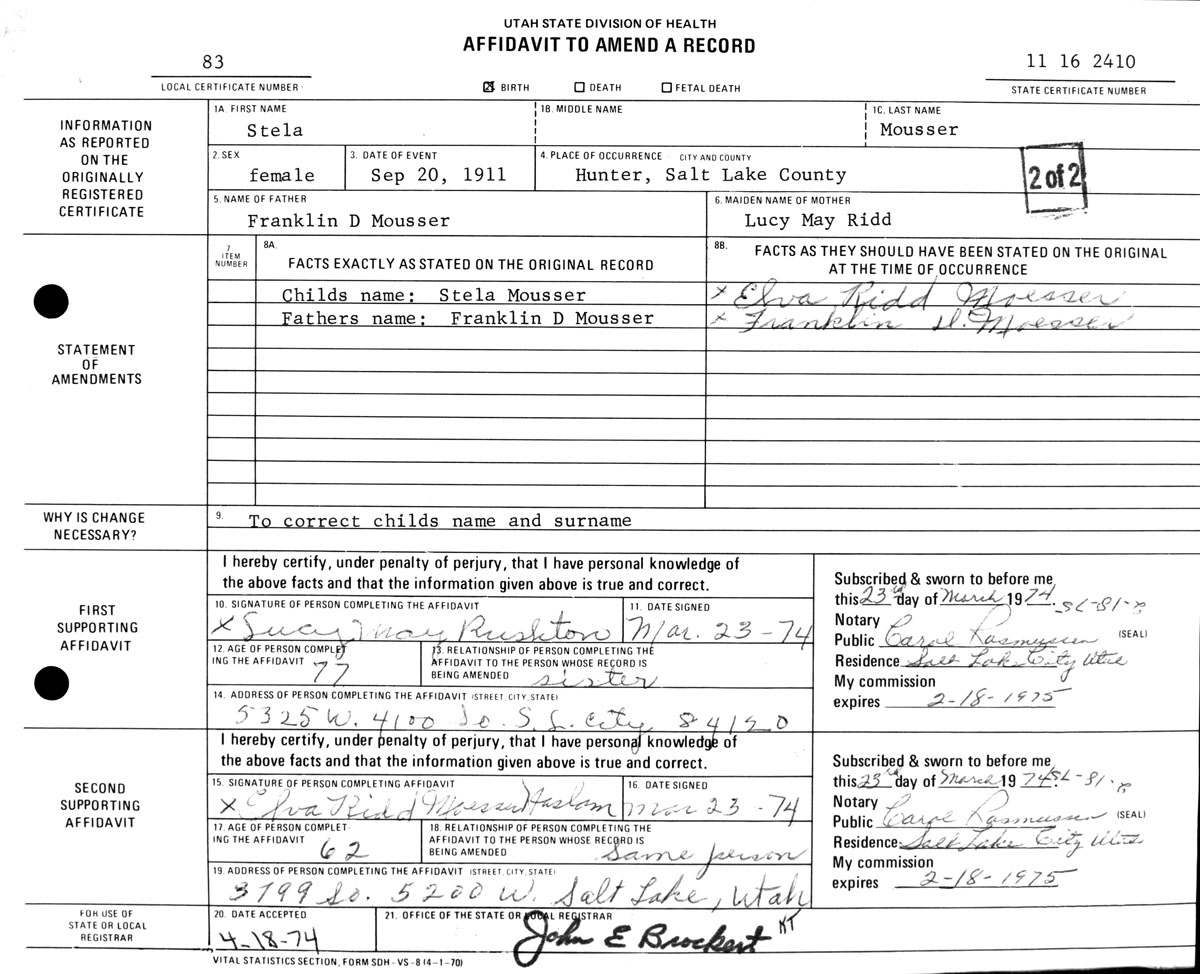 UTAH STATE DIVISION OF HEALTH
AFFIDAVIT TO AMEND A RECORD
83
LOCAL CERTIFICATE NUMBER
BIRTH DEATH FETAL DEATH
11 16 2410
STATE CERTIFICATE NUMBER
INFORMATION
AS REPORTED
ON THE
ORIGINALLY
REGISTERED
CERTIFICATE
1A. FIRST NAME
Stela
1B. MIDDLE NAME
1C. LAST NAME
Mousser
2. SEX
female
3. DATE OF EVENT
Sep 20, 1911
4. PLACE OF OCCURRENCE - CITY AND COUNTY
Hunter, Salt Lake County
2 of 2
5. NAME OF FATHER
Franklin D Mousser
6. MAIDEN NAME OF MOTHER
Lucy May Ridd
STATEMENT
OF
AMENDMENTS
7
ITEM
NUMBER
8A.
FACTS EXACTLY AS STATED ON THE ORIGINAL RECORD
8B. FACTS AS THEY SHOULD HAVE BEEN STATED ON THE ORIGINAL
AT THE TIME OF OCCURRENCE
Childs name: Stela Mousser
x Elva Ridd Moesser
Fathers name: Franklin D Mousser
x Franklin D. Moesser
WHY IS CHANGE
NECESSARY?
9. To correct childs name and surname
FIRST
SUPPORTING
AFFIDAVIT
I hereby certify, under penalty of perjury, that I have personal knowledge of
the above facts and that the information given above is true and correct.
10. SIGNATURE OF PERSON COMPLETING THE AFFIDAVIT
x Lucy May Rushton
11. DATE SIGNED
Mar. 23-74
12. AGE OF PERSON COMPLET
ING THE AFFIDAVIT 77
13. RELATIONSHIP OF PERSON COMPLETING THE
AFFIDAVIT TO THE PERSON WHOSE RECORD IS
BEING AMENDED sister
14. ADDRESS OF PERSON COMPLETING THE AFFIDAVIT (STREET, CITY, STATE)
5325 W. 4100 So. S. L. City 84120
Subscribed & sworn to before me
this 23rd day of March 1974. SL-81-8
Notary
Public Carol Rasmussen (SEAL)
Residence Salt Lake City Utah
My commission
expires 2-18-1975
SECOND
SUPPORTING
AFFIDAVIT
I hereby certify, under penalty of perjury, that I have personal knowledge of
the above facts and that the information given above is true and correct.
15. SIGNATURE OF PERSON COMPLETING AFFIDAVIT
x Elva Ridd Moesser Haslam
16. DATE SIGNED
Mar 23-74
17. AGE OF PERSON COMPLET
ING THE AFFIDAVIT 62
18. RELATIONSHIP OF PERSON COMPLETING THE
AFFIDAVIT TO THE PERSON WHOSE RECORD IS
BEING AMENDED Same person
19. ADDRESS OF PERSON COMPLETING THE AFFIDAVIT (STREET, CITY, STATE)
3799 So. 5200 W. Salt Lake, Utah
Subscribed & sworn to before me
this 23rd day of March 1974. SL-81-8
Notary
Public Carol Rasmussen (SEAL)
Residence Salt Lake City Utah
My commission
expires 2-18-1975
FOR USE OF
STATE OR LOCAL
REGISTRAR
20. DATE ACCEPTED
4-18-74
21. OFFICE OF THE STATE OR LOCAL REGISTRAR
John E Brockert KT
VITAL STATISTICS SECTION, FORM SDH-VS-8 (4-1-70)